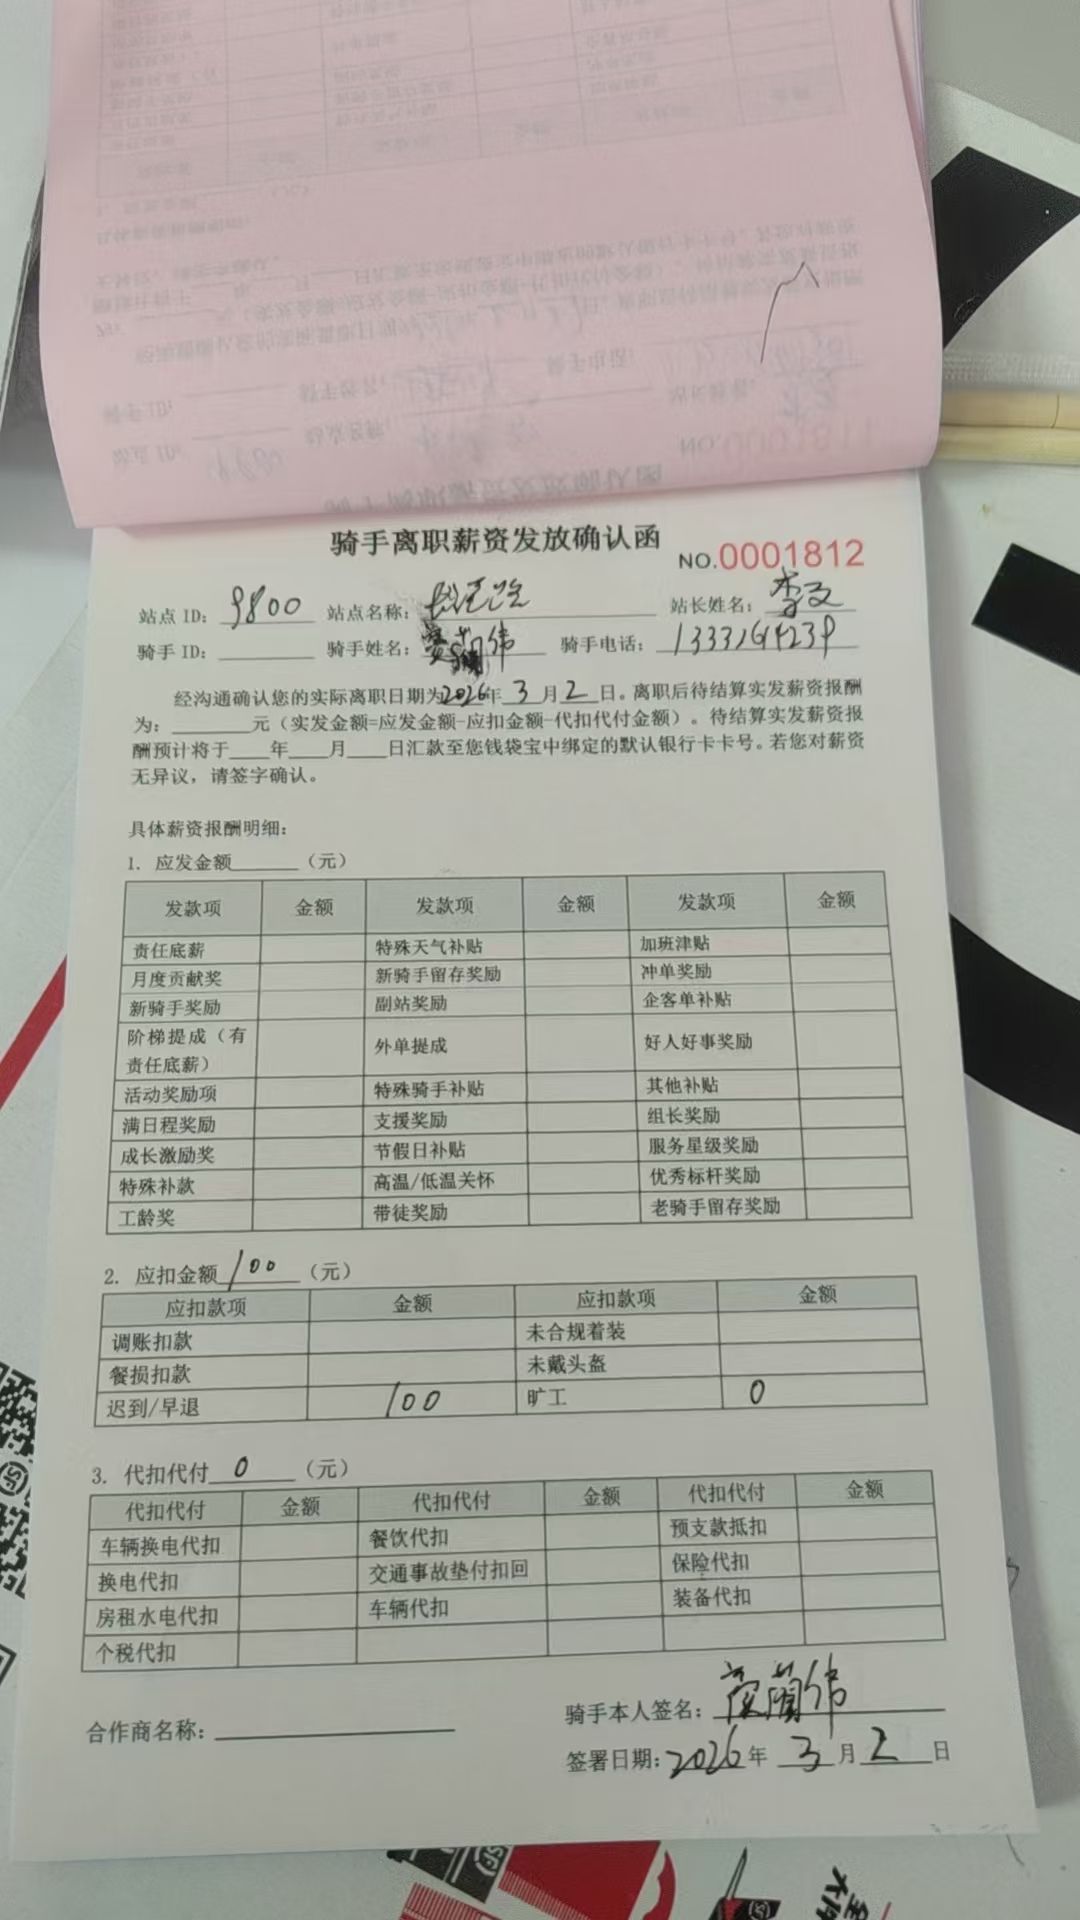 骑手离职薪资发放确认函
NO.0001812
站点 ID: 9800 站点名称: 站长姓名: 李文
骑手 ID: 骑手姓名: 伟 骑手电话:
经沟通确认您的实际离职日期为2026年3月2日。离职后待结算实发薪资报酬
为:______元（实发金额=应发金额-应扣金额-代扣代付金额）。待结算实发薪资报
酬预计将于___年___月___日汇款至您钱袋宝中绑定的默认银行卡卡号。若您对薪资
无异议，请签字确认。
具体薪资报酬明细：
1. 应发金额______（元）
发款项 金额 发款项 金额 发款项 金额
责任底薪 特殊天气补贴 加班津贴
月度贡献奖 新骑手留存奖励 冲单奖励
新骑手奖励 副站奖励 企客单补贴
阶梯提成（有
责任底薪） 外单提成 好人好事奖励
活动奖励项 特殊骑手补贴 其他补贴
满日程奖励 支援奖励 组长奖励
成长激励奖 节假日补贴 服务星级奖励
特殊补款 高温/低温关怀 优秀标杆奖励
工龄奖 带徒奖励 老骑手留存奖励
2. 应扣金额 100 （元）
应扣款项 金额 应扣款项 金额
调账扣款 未合规着装
餐损扣款 未戴头盔
迟到/早退 100 旷工 0
3. 代扣代付 0 （元）
代扣代付 金额 代扣代付 金额 代扣代付 金额
车辆换电代扣 餐饮代扣 预支款抵扣
换电代扣 交通事故垫付扣回 保险代扣
房租水电代扣 车辆代扣 装备代扣
个税代扣
合作商名称: 骑手本人签名: 伟
签署日期: 2026年 3月 2日